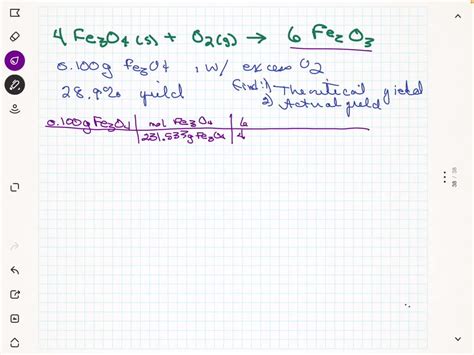 4 Fe3O4(s) + O2(g) → 6 Fe2O3
0.100g Fe3O4 , w/ excess O2
28.9% yield Find: 1) Theoritical yield
2) Actual yield
0.100g Fe3O4 | mol Fe3O4 | 6
231.533g Fe3O4 | 4